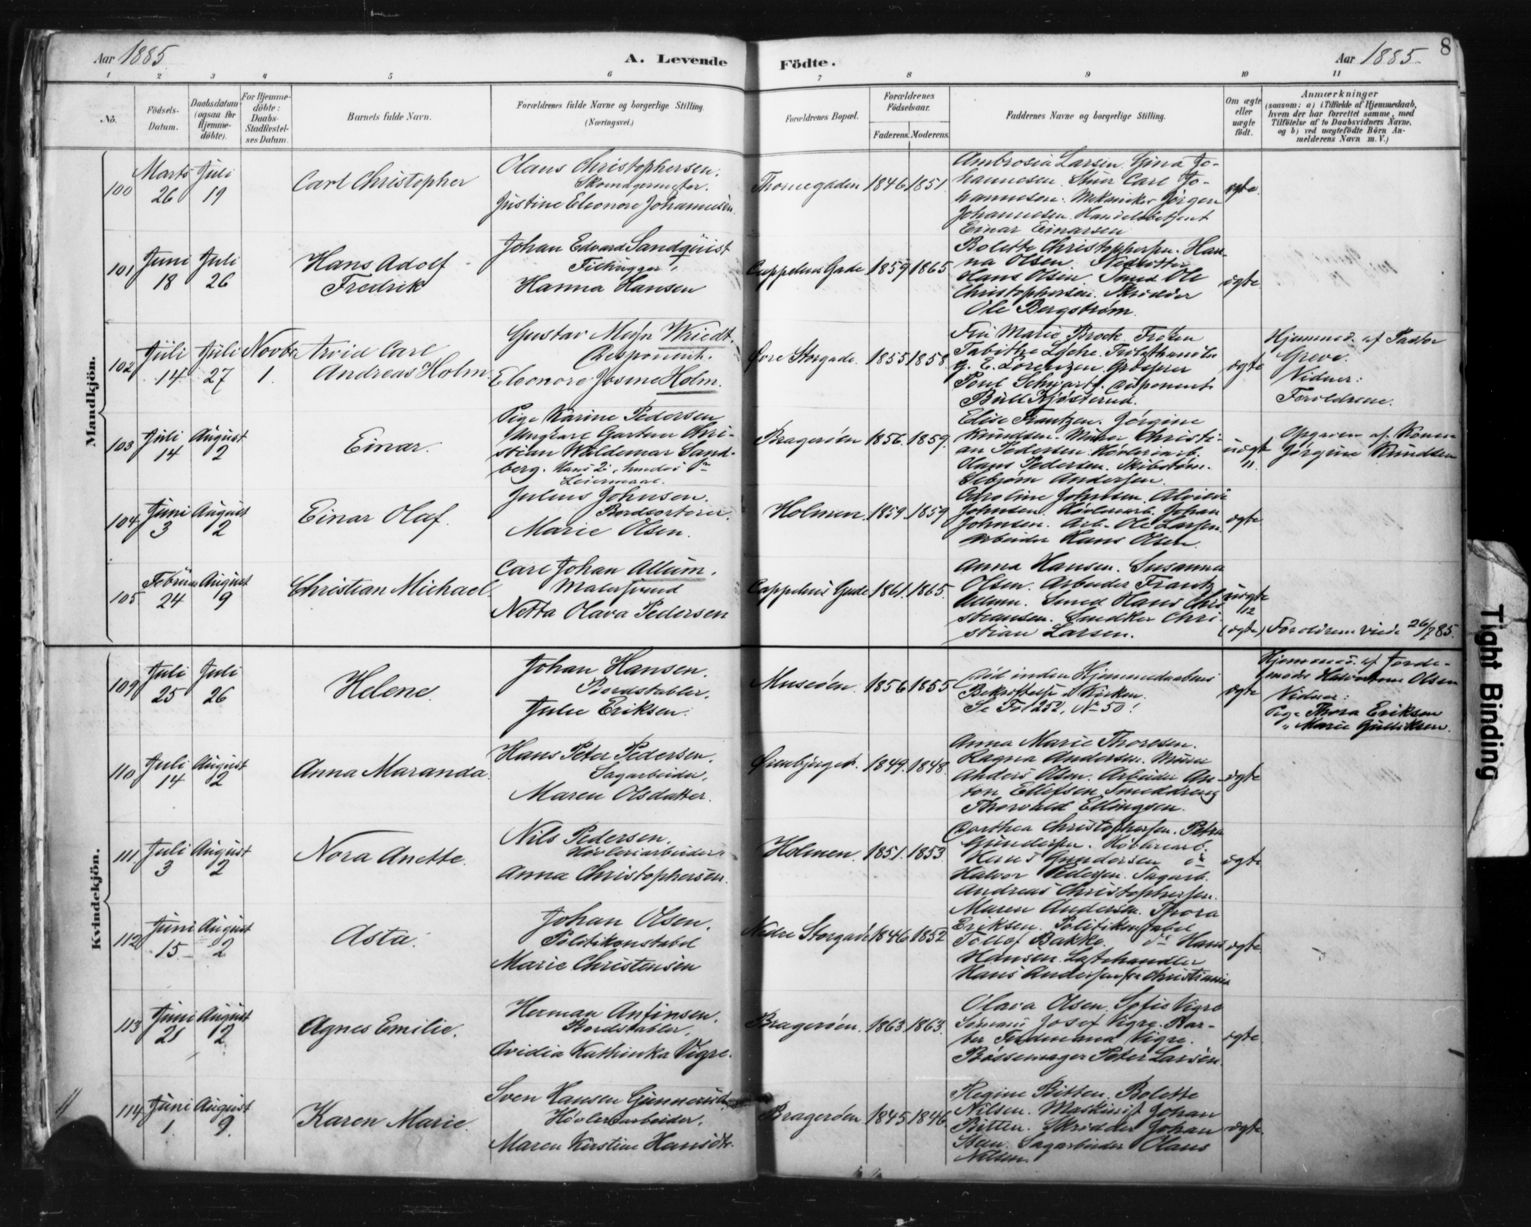 Aar 1885.
A. Levende Födte.
Aar 1885.
8
1 2 3 4 5 6 7 8 9 10 11
No.
Födsels-
Datum.
Daabsdatum
(ogsaa for
Hjemme-
döbte).
For Hjemme-
döbte:
Daabs-
Stadfæstel-
ses Datum.
Barnets fulde Navn.
Forældrenes fulde Navne og borgerlige Stilling.
(Næringsvei.)
Forældrenes Bopæl.
Forældrenes
Födselsaar.
Faderens. Moderens.
Faddernes Navne og borgerlige Stilling.
Om ægte
eller
uægte
födt.
Anmærkninger
(saasom: a) i Tilfælde af Hjemmedaab,
hvem der har forrettet samme, med
Tilföielse af to Daabsvidners Navne,
og b) ved uægtefödte Börn An-
melderens Navn m. V.)
Mandkjön.
100
Marts
26
Juli
19
Carl Christopher
Olaus Christophersen.
Skomagermester.
Justine Eleonore Johannesen.
Thornegaden
1846
1851
Ambrosia Larsen. Gina Jo-
hannesen. Stuer Carl Jo-
hannesen. Mekaniker Jörgen
Johannesen. Handelsbetjent
Einar Einarsen
ægte
101
Juni
18
Juli
26
Hans Adolf
Fredrik
Johan Edvard Sandquist
Tilhugger,
Hanna Hansen
Cappelens Gade
1859
1865
Bolette Christophersen. Han-
na Olsen.
Hans Olsen. Smed Ole
Christophersen. Skrædder
Ole Bergström.
ægte
102
Juli
14
Juli
27
Novbr
1.
Arvid Carl
Andreas Holm.
Gustav Wriedt.
Disponent.
Eleonore Josine Holm.
Övre Storgade.
1855
1858
Fru Marie Brock. Fröken
Tabitha Lyche.
G. E. Lorenzen. Grosserer
Poul Schwartz. Disponent
ægte
Hjemmed. af Pastor
Greve.
Vidner:
Forældrene.
103
Juli
14
August
2
Einar.
Pige Karine Pedersen
Ungkarl Gartner Chri-
stian Waldemar Sand-
berg. Hans 2., hendes 1ste
Leiermaal.
Bragerøen
1856
1859
Elise Frantzen. Jörgine
Knudsen. Murer Christi-
an Pedersen. Hövleriarb.
Olaus Pedersen. Skibstöm.
Andersen.
uægt
11.
Opgaven af Konen
Jörgine Knudsen
104
Juni
3
August
2
Einar Olaf.
Julius Johnsen.
Bordsorterer.
Marie Olsen.
Holmen.
1859
1859
Caroline Johnsen.
Johnsen. Hövleriarb. Johan
Johnsen. Arb. Ole Larsen.
Arbeider Hans Olsen
ægte
105
Februar
24
August
9
Christian Michael
Carl Johan Allum.
Malersvend
Netta Olava Pedersen
Cappelens Gade
1861.
1865.
Anna Hansen. Susanna
Olsen. Arbeider Frantz
Allum. Smed Hans Chri-
stiansen. Snedker Chri-
stian Larsen.
uægte
12
(ægte)
Forældrene viede 26/7 85.
Kvindekjön.
109
Juli
25
Juli
26
Helene
Johan Hansen.
Bordstabler.
Julie Eriksen.
Museöen.
1856
1855
Död inden Hjemmedaabens
Bekræftelse i Kirken.
Se Fol 252, No 50!
ægte
Hjemmed. af Jorde-
moder Halvordine Olsen
Vidner:
Pige Thora Eriksen
" Marie Gulliksen.
110
Juli
14
August
2
Anna Maranda.
Hans Peter Pedersen.
Sagarbeider.
Maren Olsdatter.
1849
1848
Anna Marie Thoresen.
Ragna Andersen. Murer
Anders Olsen. Arbeider An-
ton Ellefsen. Smeddreng
Thorvald Ellingsen.
ægte
111
Juli
3
August
2
Nora Anette.
Nils Pedersen.
Hövleriarbeider.
Anna Christophersen.
Holmen.
1851
1853
Dorthea Christophersen. Petra
Gundersen. Hövleriarb.
Hans Gundersen do
Halvor Pedersen. Sagarb.
Andreas Christophersen.
ægte
112
Juni
15
August
2
Asta.
Johan Olsen.
Politikonstabel
Marie Christensen
Nedre Storgade
1846
1852
Maren Andersen. Thora
Eriksen. Politikonstabel
Tollef Bakke. do Hans
Hansen. Lasthandler
Hans Andersen fra Christiania
ægte
113
Juni
21
August
2
Agnes Emilie.
Herman Anfinsen.
Bordstabler.
Ovidia Kathinka Vigre.
Bragerøen.
1863.
1863.
Olava Olsen. Sofie Vigre
Sömand Josef Vigre. Bar-
ber Ferdinand Vigre.
Bössemager Peter Larsen.
ægte
114
Juni
1
August
9
Karen Marie.
Sven Hansen Gunnerud
Hövleriarbeider.
Maren Kirstine Hansdtr.
Bragerøen
1845
1846
Regine Bitten. Bolette
Nilsen. Maskinist Johan
Bitten. Skrædder Johan
Steen. Sagarbeider Olaus
Nilsen.
ægte.
Tight Binding